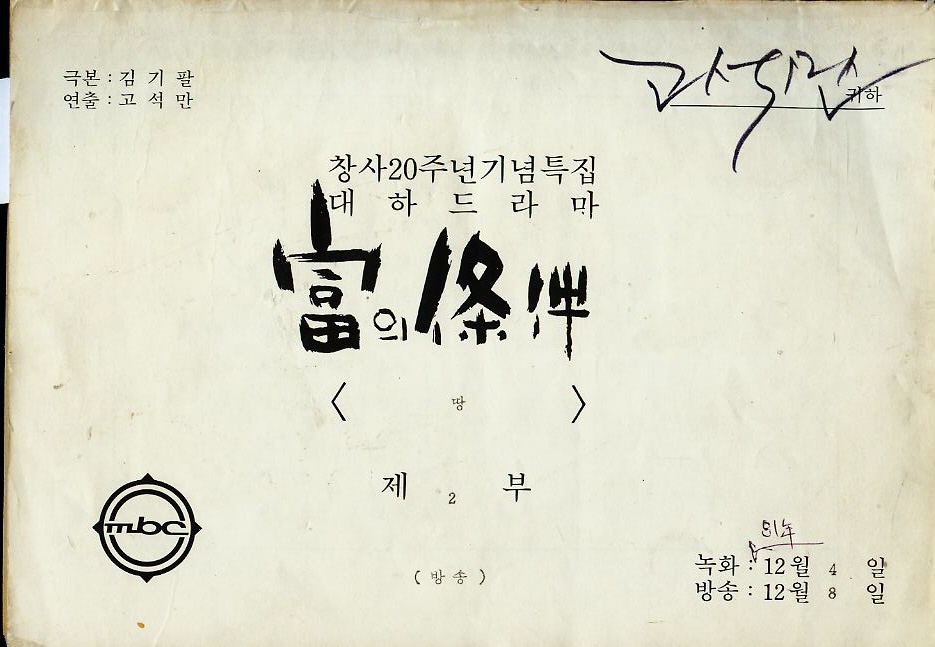 극본 : 김 기 팔
연출 : 고 석 만
고석만 귀하
창사20주년기념특집
대 하 드 라 마
富의 條件
〈 땅 〉
제 2 부
mbc
( 방 송 )
81年
녹화 : 12월 4 일
방송 : 12월 8 일